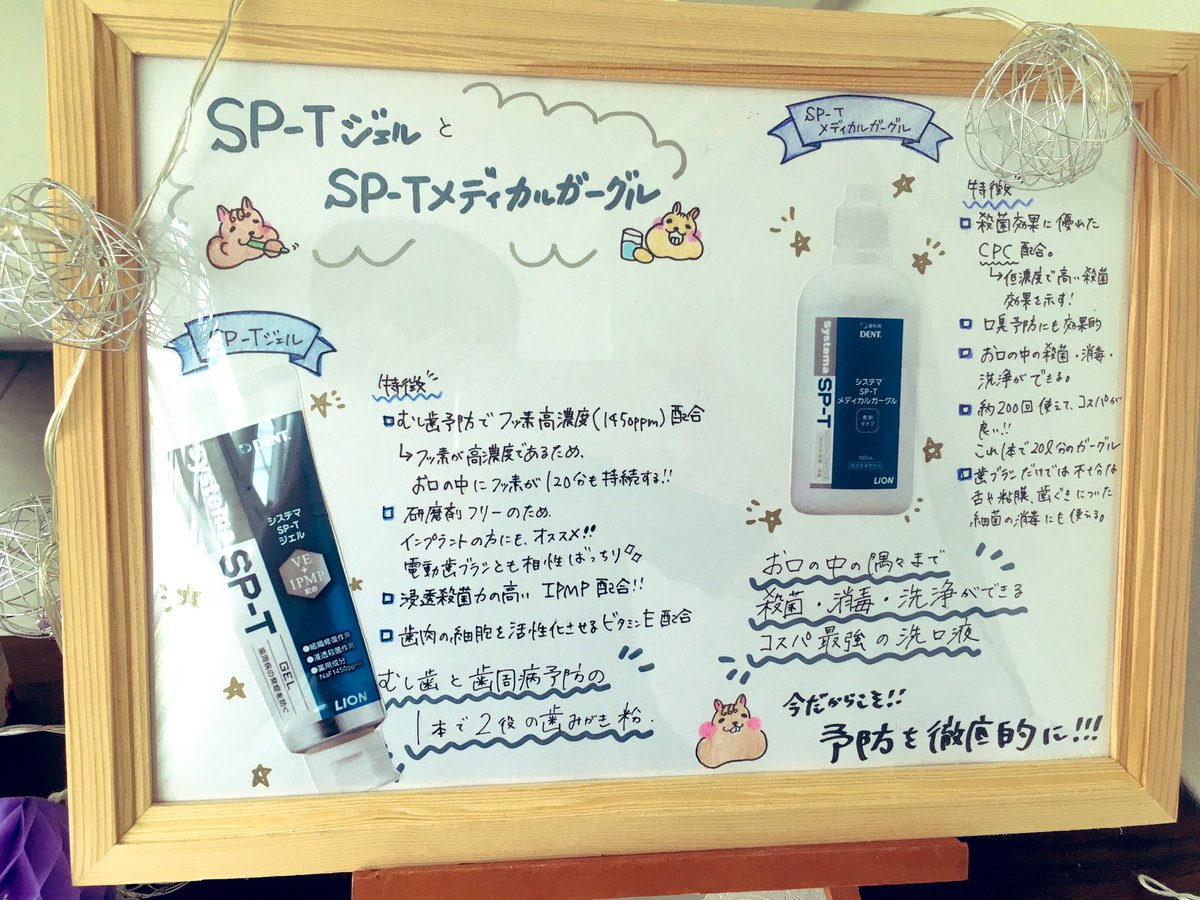 SP-Tジェルと
SP-Tメディカルガーグル
SP-Tジェル
特徴
むし歯予防でフッ素高濃度(1450ppm)配合
↳フッ素が高濃度であるため、
お口の中にフッ素が120分も持続する!!
研磨剤フリーのため、
インプラントの方にも、オススメ!!
電動歯ブラシとも相性ばっちり
浸透殺菌力の高い IPMP配合!!
歯肉の細胞を活性化させるビタミンE配合
むし歯と歯周病予防の
1本で2役の歯みがき粉.
DENT.
Systema
SP-T
システマ
SP-T
ジェル
VE
+
IPMP
配合
GEL
●組織修復作用
●浸透殺菌作用
●薬用成分
NaF1450ppm
LION
SP-T
メディカルガーグル
歯科用
DENT.
Systema
SP-T
システマ
SP-T
メディカルガーグル
長刺
タイプ
100mL
LION
特徴
殺菌効果に優れた
CPC配合。
↳低濃度で高い殺菌
効果を示す!
口臭予防にも効果的
お口の中の殺菌・消毒・
洗浄ができる。
約200回使えて、コスパが
良い!!
これ1本で20ℓ分のガーグル
歯ブラシだけでは不十分な
舌や粘膜、歯ぐきについた
細菌の消毒にも使える。
お口の中の隅々まで
殺菌・消毒・洗浄ができる
コスパ最強の洗口液
今だからこそ!!
予防を徹底的に!!!